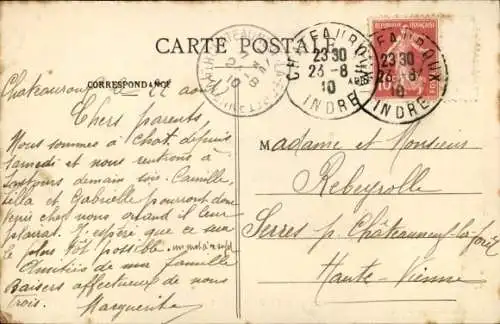 CARTE POSTALE
CORRESPONDANCE
Chateauroux le 22 août
Chers parents,
Nous sommes à Chat. depuis
Samedi et nous rentrons à
demain soir. Camille,
Stella et Gabrielle pourront donc
venir chez nous quand il leur
plaira. J'espère que ce sera
le plus tôt possible.
Amitiés de ma famille
Baisers affectueux de nous
trois.
Marguerite
CHATEAUROUX
23 30
23-8
10
INDRE
CHATEAUROUX
23 30
23-8
10
INDRE
10
Madame et Monsieur
Rebeyrolle
Serres p. Châteauneuf-la-forêt
Haute-Vienne